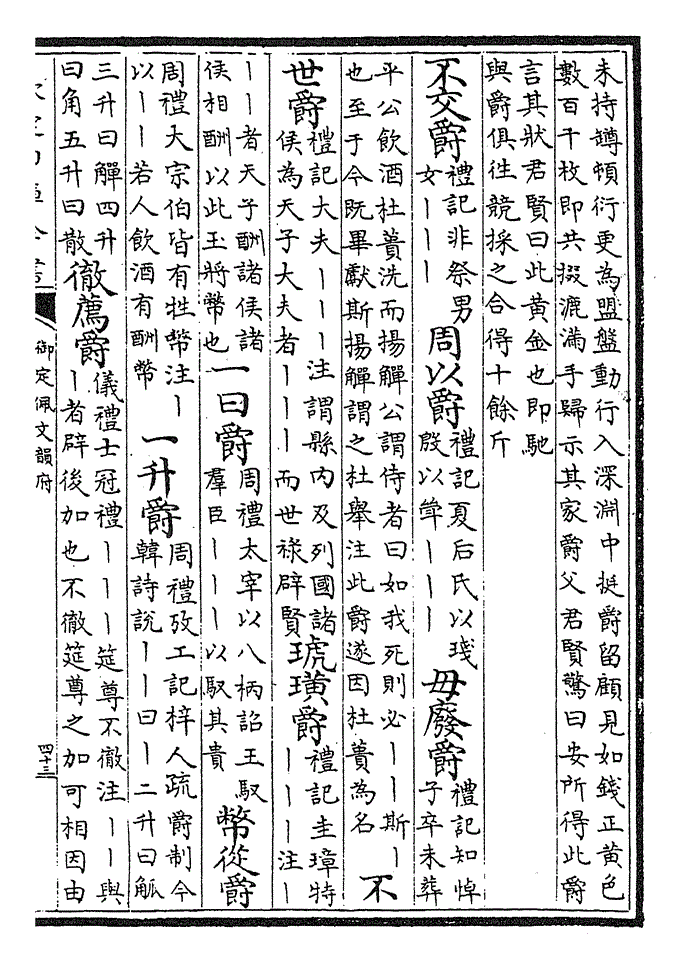 未持罇頓衍更為盟盤動行入深淵中挺爵留顧見如錢正黃色
數百千枚即共掇漉滿手歸示其家爵父君賢驚曰安所得此爵
言其狀君賢曰此黃金也即馳
與爵俱往競採之合得十餘斤
不交爵
禮記非祭男
女丨丨丨
周以爵
禮記夏后氏以琖
殷以斝丨丨丨
毋廢爵
禮記知悼
子卒未葬
平公飲酒杜蕢洗而揚觶公謂侍者曰如我死則必丨丨斯丨
也至于今既畢獻斯揚觶謂之杜舉注此爵遂因杜蕢為名
不
世爵
禮記大夫丨丨丨注謂縣内及列國諸
侯為天子大夫者丨丨丨而世祿辟賢
琥璜爵
禮記圭璋特
丨丨丨注丨
丨丨者天子酬諸侯諸
侯相酬以此玉將幣也
一曰爵
周禮太宰以八柄詔王馭
羣臣丨丨丨以馭其貴
幣從爵
周禮大宗伯皆有牲幣注丨
以丨丨若人飲酒有酬幣
一升爵
周禮攷工記梓人疏爵制今
韓詩說丨丨曰丨二升曰觚
三升曰觶四升
曰角五升曰散
徹薦爵
儀禮士冠禮丨丨丨筵尊不徹注丨丨與
丨者辟後加也不徹筵尊之加可相因由
御定佩文韻府
四十三